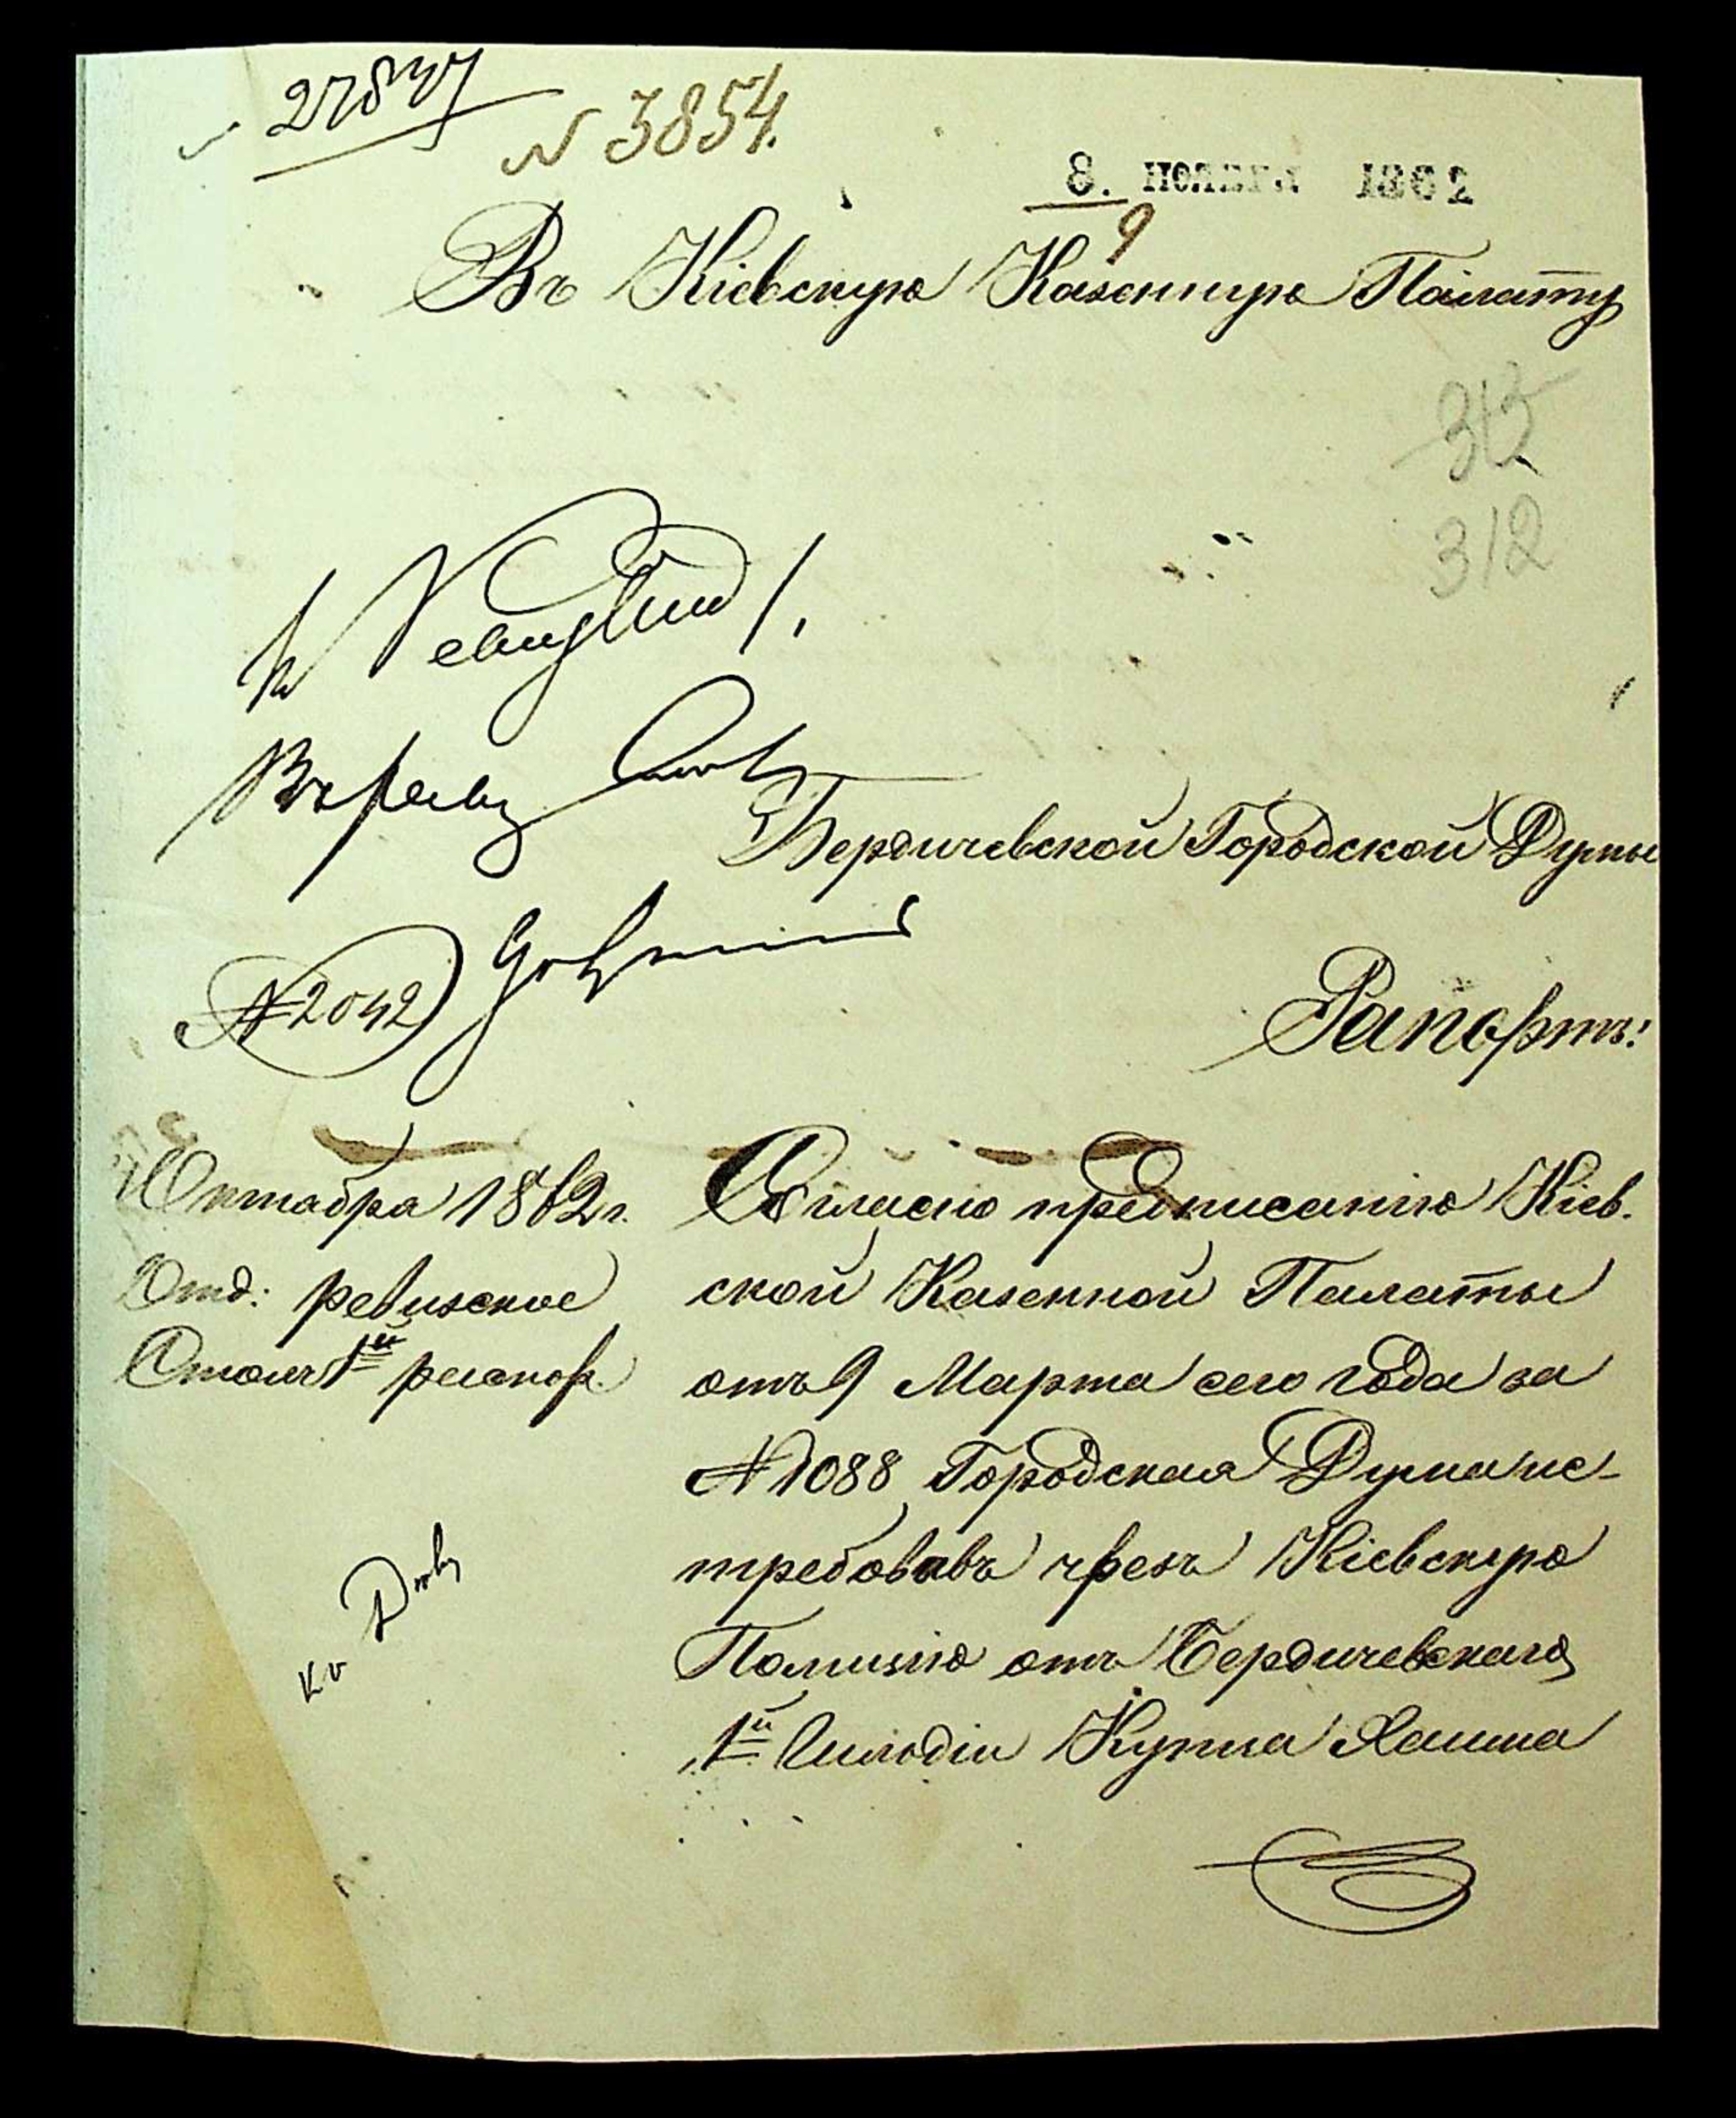 27847
N 3854.
8. НОЯБРЯ 1862
9
Въ Кіевскую Казенную Палату
313
312
Бердичевской Городской Думы
№ 2042
Рапортъ!
Октября 1862 г.
Отд: ревизское
Столъ 1й
Согласно предписанію Кіев.
ской Казенной Палаты
отъ 9 Марта сего года за
№ 1088 Городская Дума ис-
требовавъ чрезъ Кіевскую
Полицію отъ Бердичевскаго
1й Гильдіи Купца Хаима